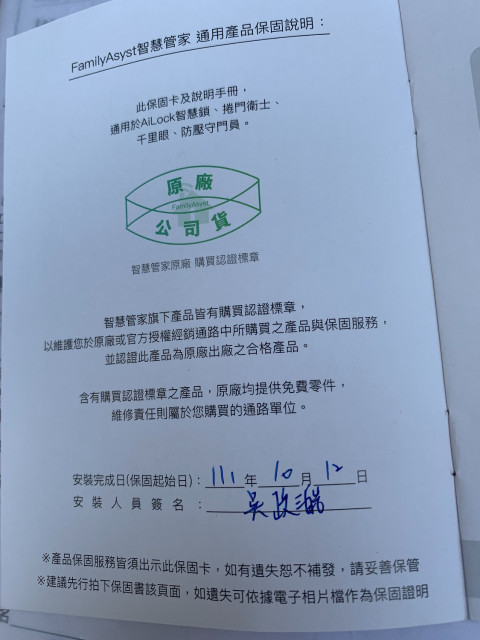 FamilyAsyst智慧管家 通用產品保固說明：
此保固卡及說明手冊，
通用於AiLock智慧鎖、捲門衛士、
千里眼、防壓守門員。
原廠
FamilyAsyst
公司貨
智慧管家原廠 購買認證標章
智慧管家旗下產品皆有購買認證標章，
以維護您於原廠或官方授權經銷通路中所購買之產品與保固服務，
並認證此產品為原廠出廠之合格產品。
含有購買認證標章之產品，原廠均提供免費零件，
維修責任則屬於您購買的通路單位。
安裝完成日(保固起始日)：111年10月12日
安裝人員簽名：吳政
※產品保固服務皆須出示此保固卡，如有遺失恕不補發，請妥善保管
※建議先行拍下保固書該頁面，如遺失可依據電子相片檔作為保固證明